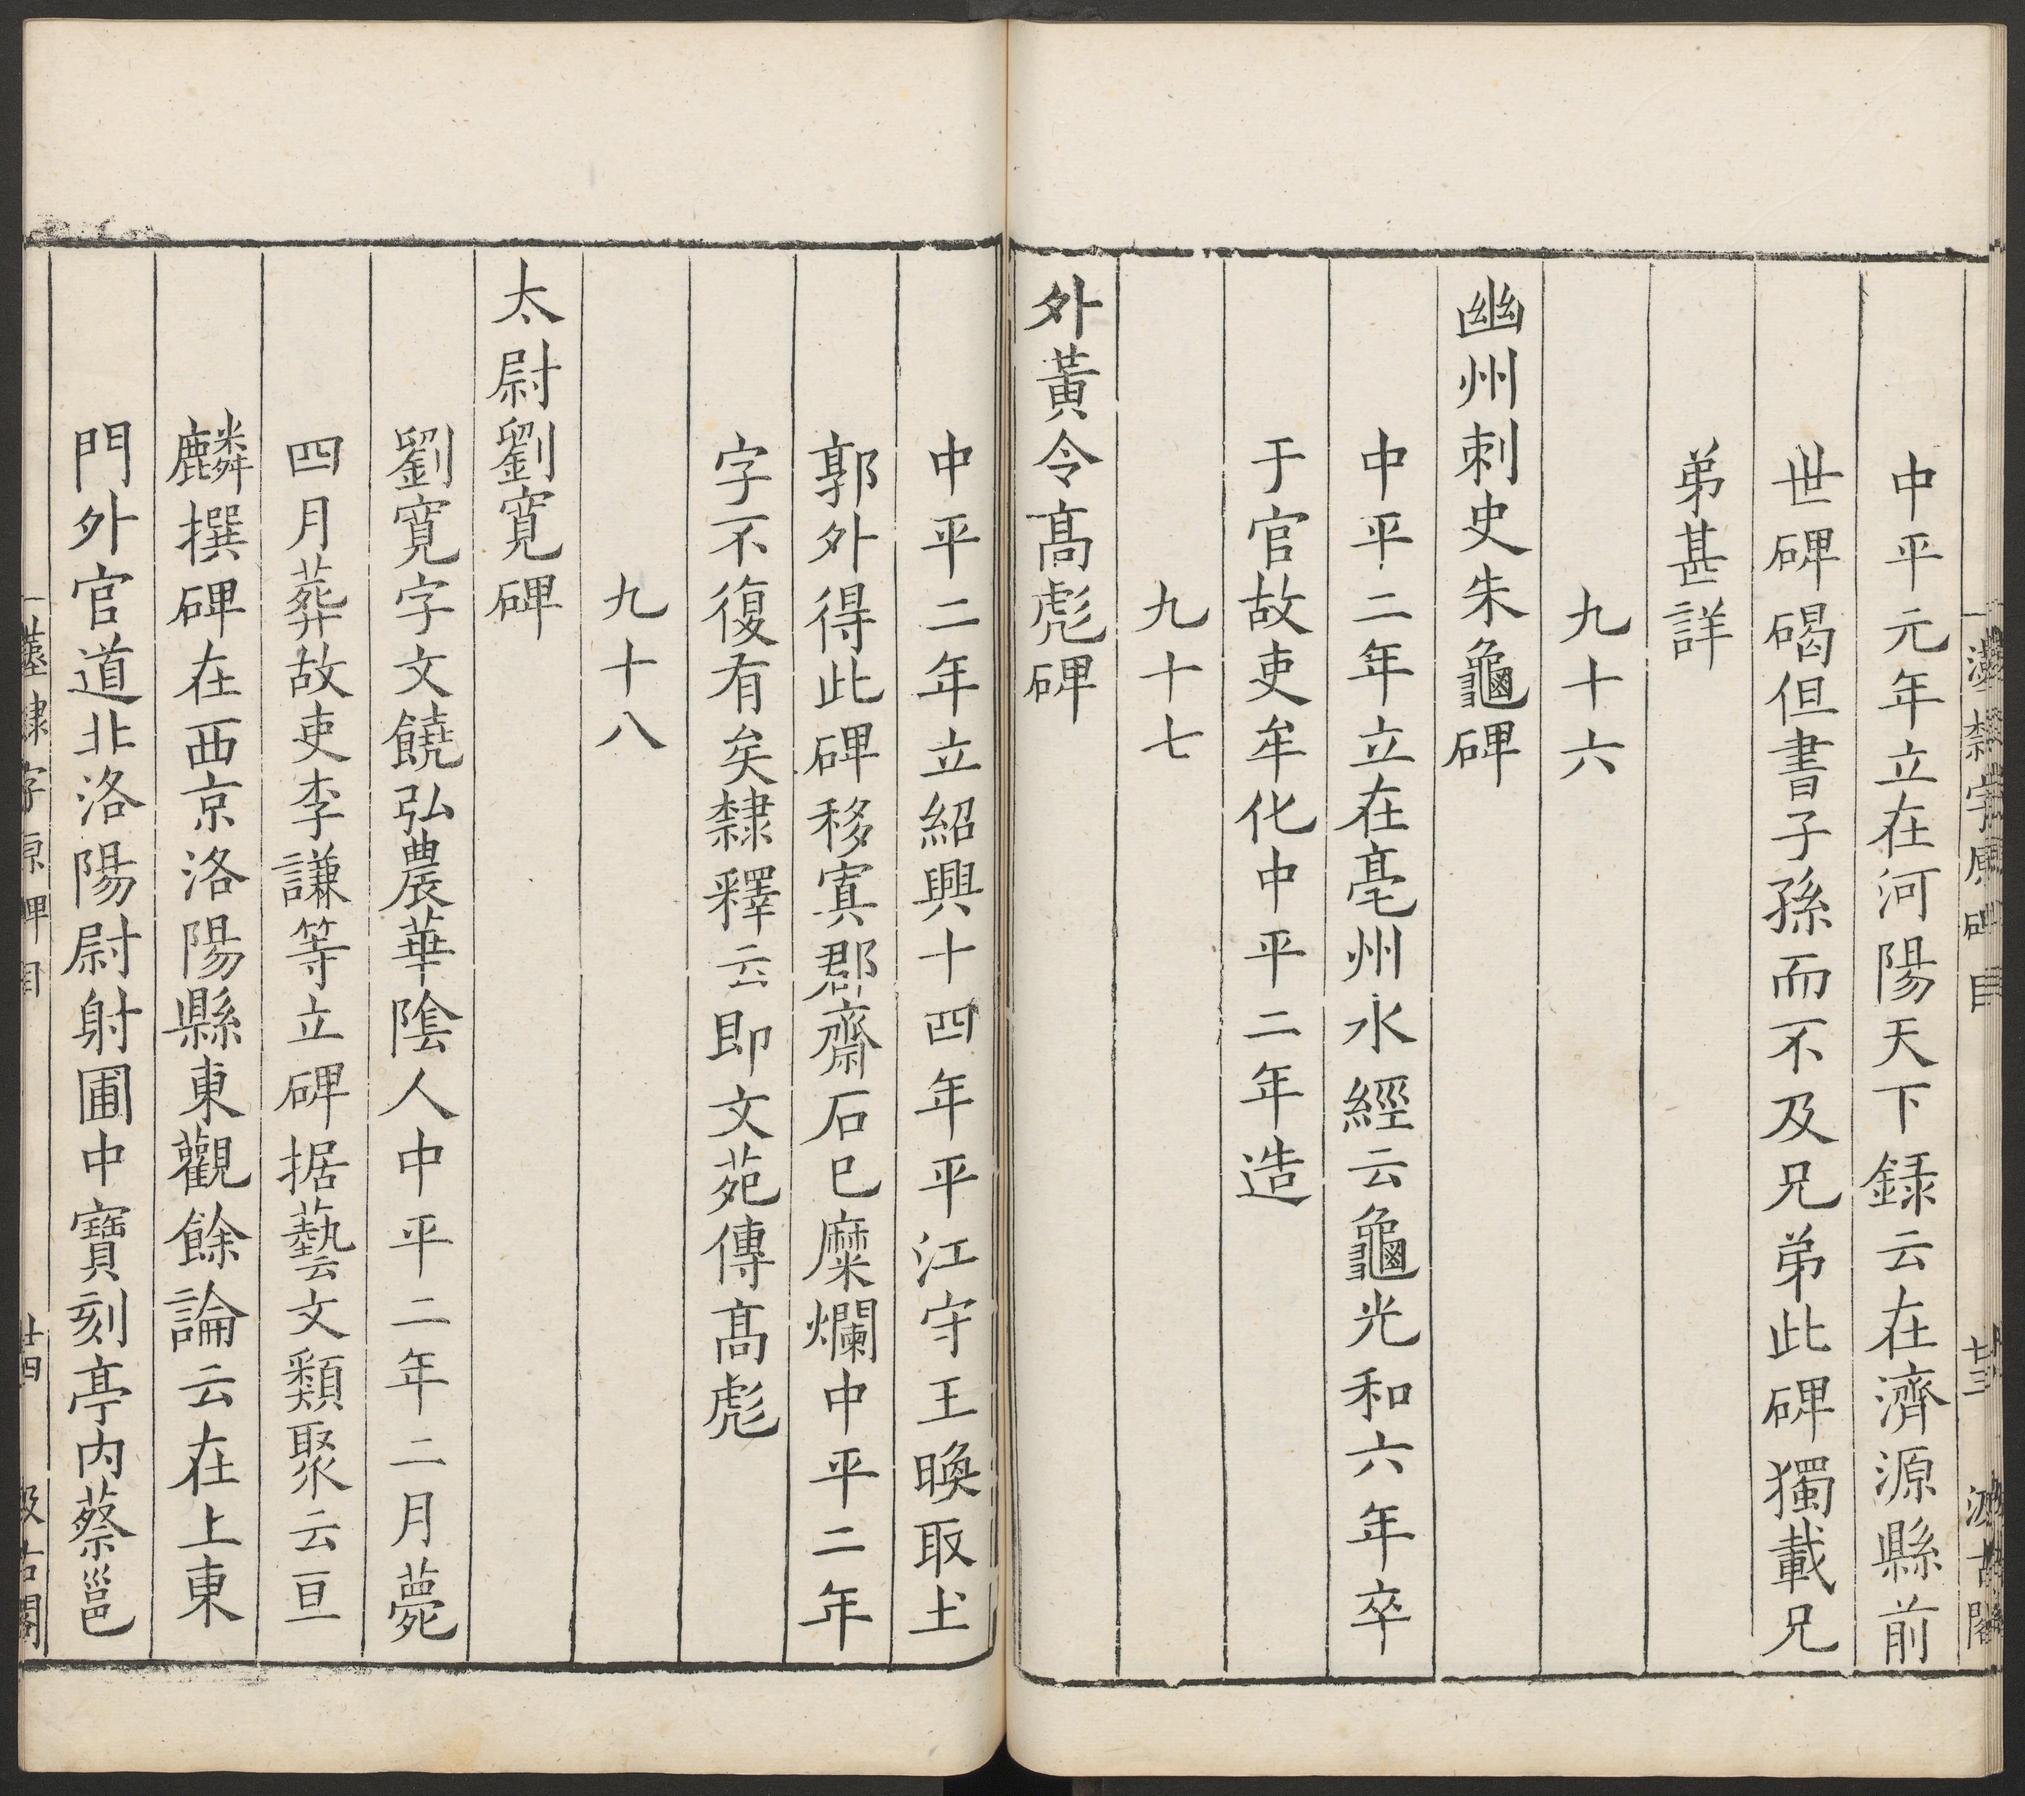 中平元年立在河陽天下録云在濟源縣前
世碑碣但書子孫而不及兄弟此碑獨載兄
弟甚詳
九十六
幽州刺史朱龜碑
中平二年立在亳州水經云龜光和六年卒
于官故吏牟化中平二年造
九十七
外黃令高彪碑
中平二年立紹興十四年平江守王㬇取土
郭外得此碑移寘郡齋石巳糜爛中平二年
字不復有矣隸釋云即文苑傳高彪
九十八
太尉劉寛碑
劉寛字文饒弘農華陰人中平二年二月薨
四月葬故吏李謙等立碑据藝文類聚云亘
麟撰碑在西京洛陽縣東觀餘論云在上東
門外官道北洛陽尉射圃中寶刻亭内蔡邕